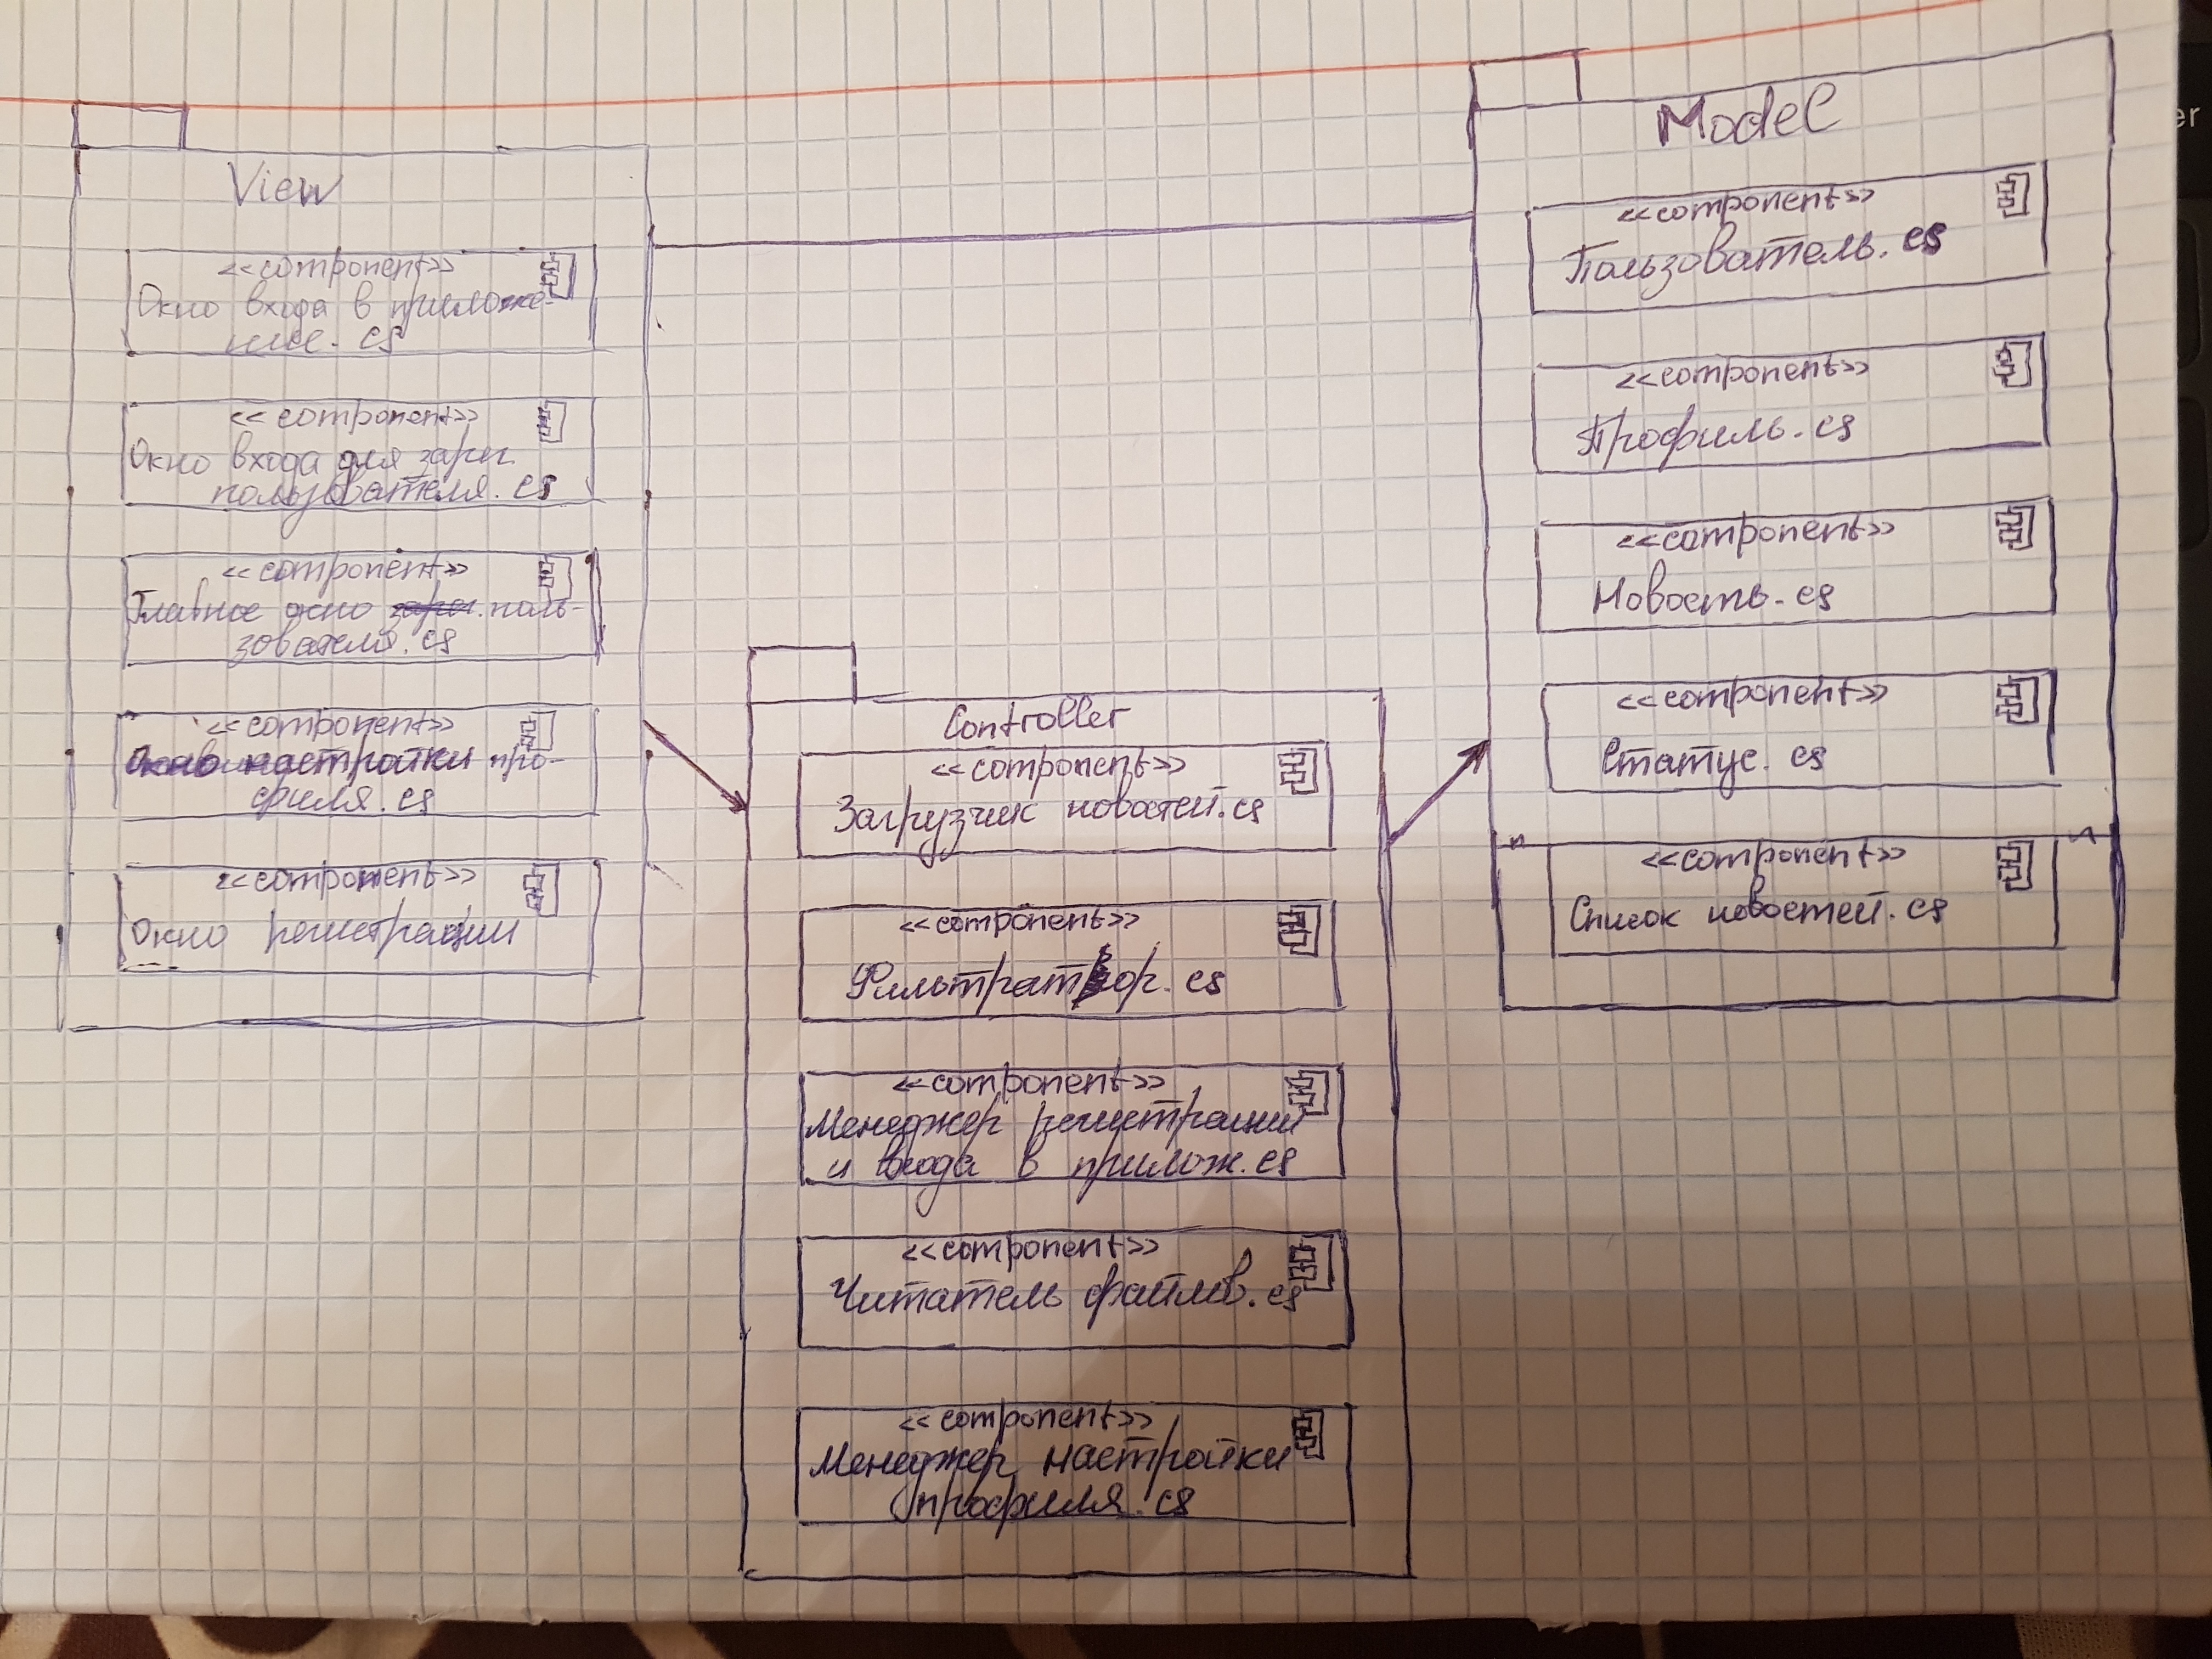 View
<<component>>
Окно входа в приложе-
ние.cs
<<component>>
Окно входа для зарег.
пользователя.cs
<<component>>
Главное окно зарег. поль-
зователя.cs
<<component>>
Окно настройки про-
филя.cs
<<component>>
Окно регистрации
Controller
<<component>>
Загрузчик новостей.cs
<<component>>
Фильтратор.cs
<<component>>
Менеджер регистрации
и входа в прилож.cs
<<component>>
Читатель файлов.cs
<<component>>
Менеджер настройки
профиля.cs
Model
<<component>>
Пользователь.cs
<<component>>
Профиль.cs
<<component>>
Новость.cs
<<component>>
Статус.cs
<<component>>
Список новостей.cs
er